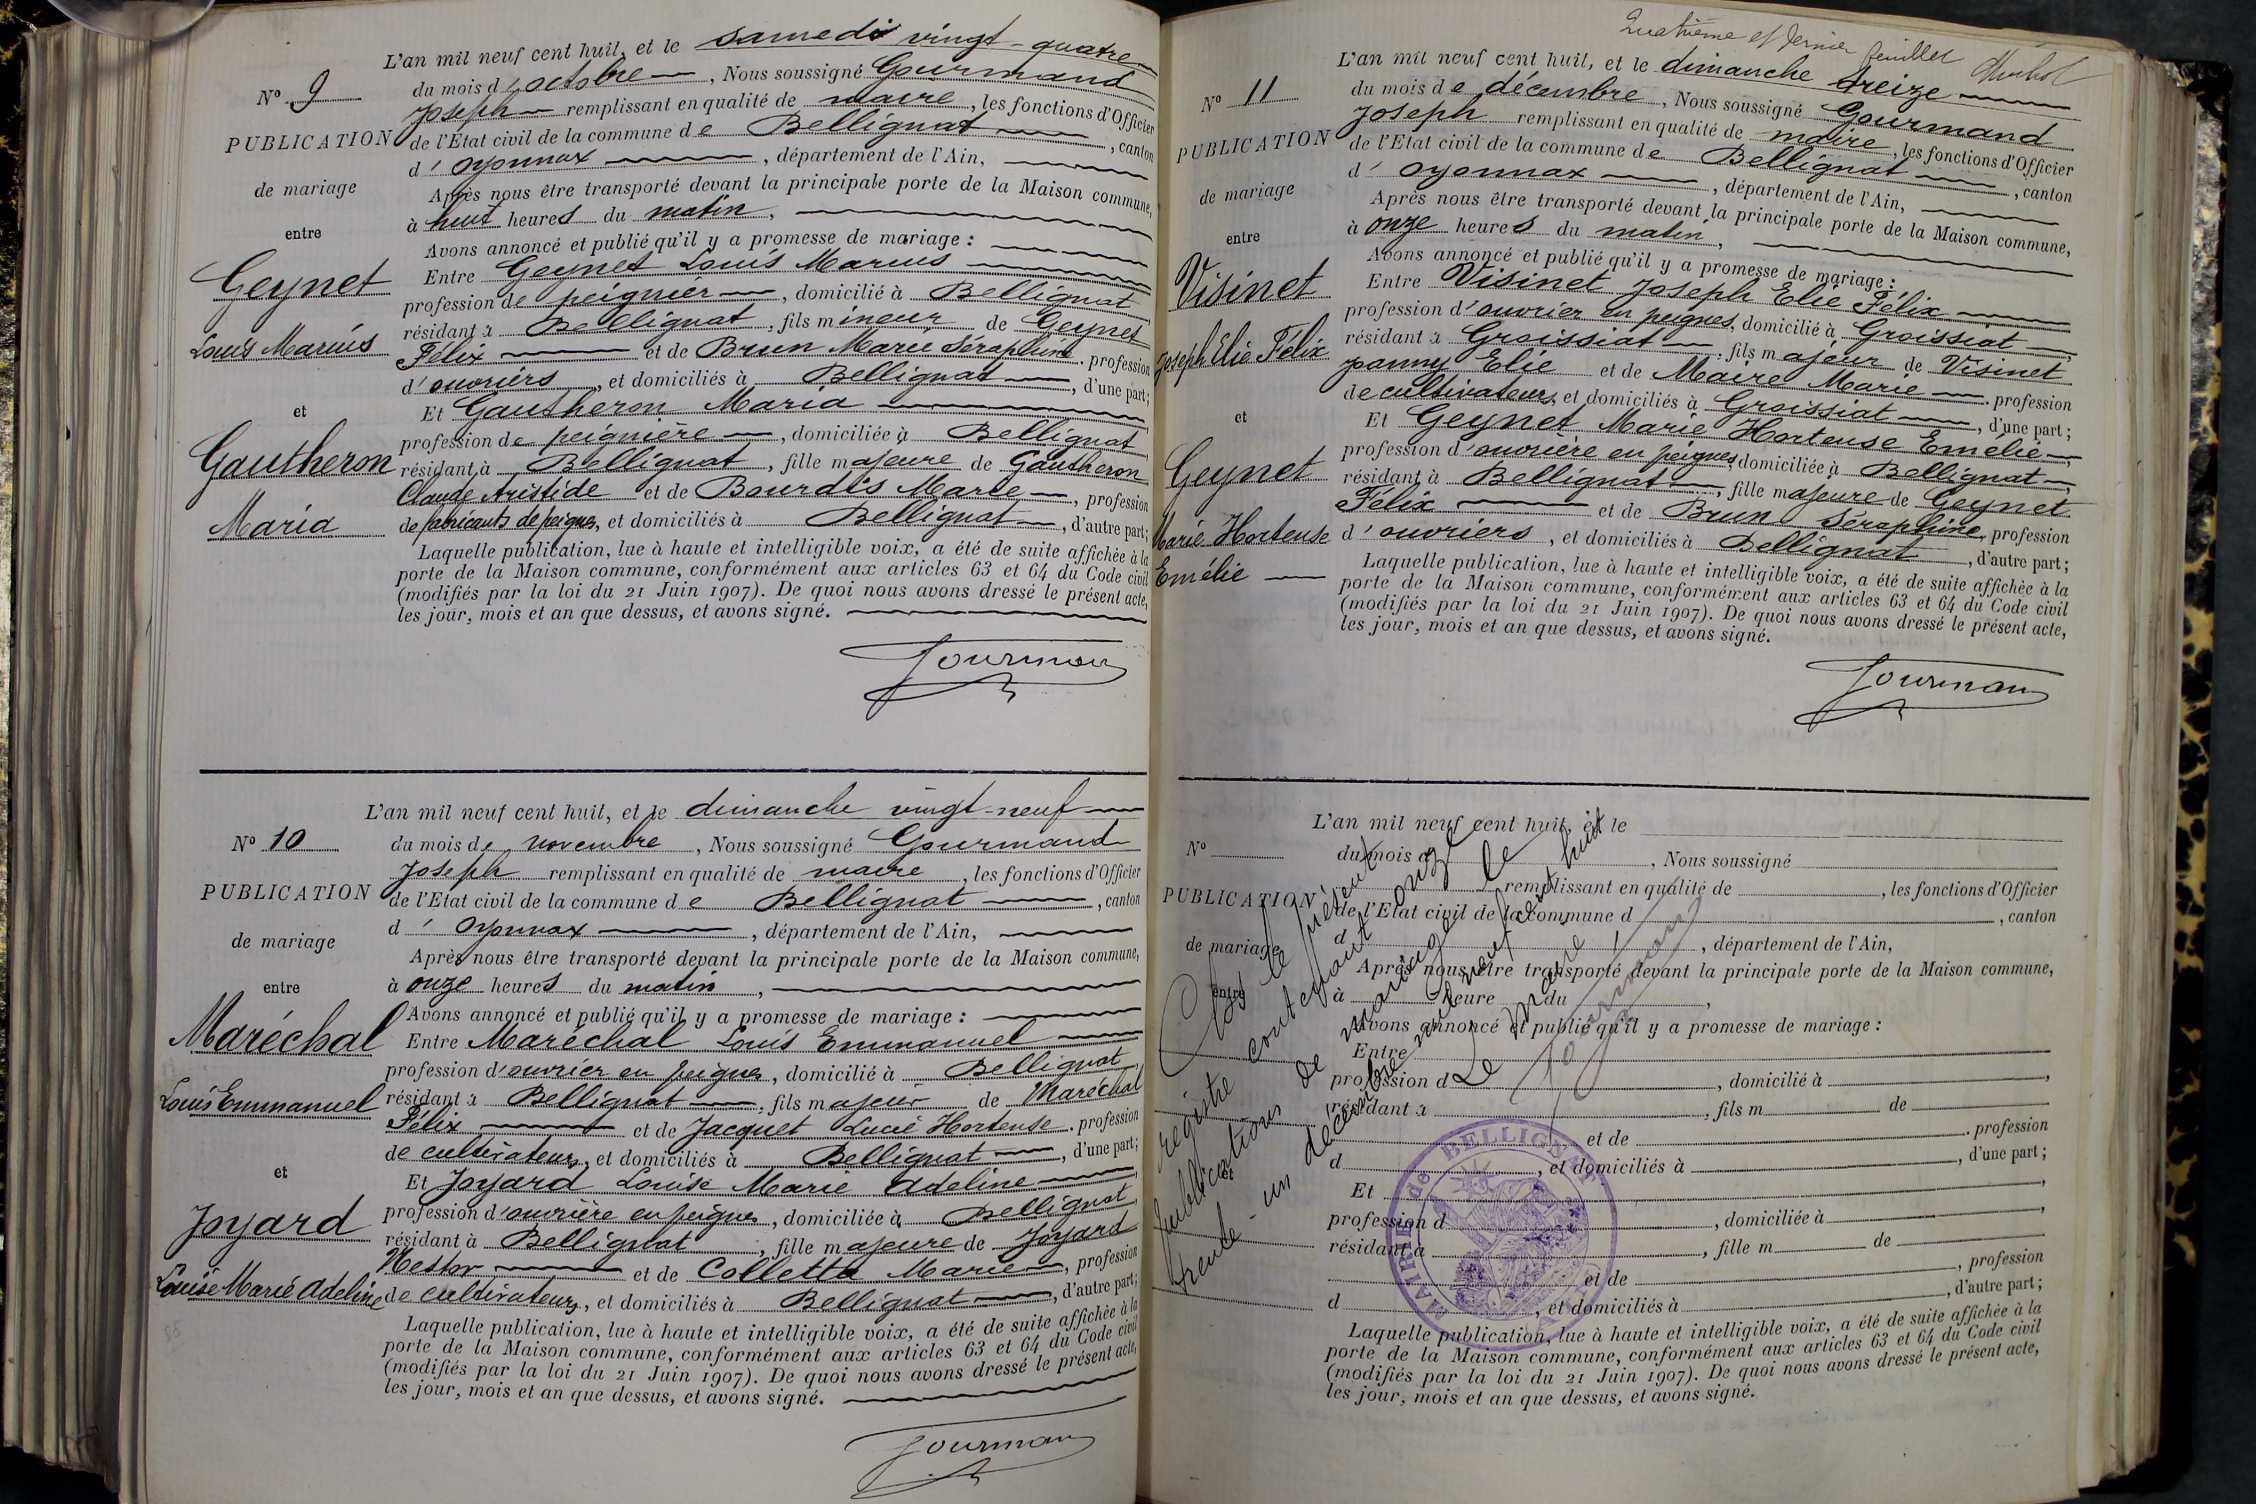 L'an mil neuf cent huit, et le samedi vingt-quatre
N° 9
du mois d'octobre, Nous soussigné Gourmand
Joseph remplissant en qualité de maire, les fonctions d'Officier
PUBLICATION
de l'État civil de la commune de Bellignat, canton
d'Oyonnax, département de l'Ain,
de mariage
Après nous être transporté devant la principale porte de la Maison commune,
à huit heures du matin,
entre
Avons annoncé et publié qu'il y a promesse de mariage :
Geynet
Entre Geynet Louis Marius
profession de peignier, domicilié à Bellignat
Louis Marius
résidant à Bellignat, fils mineur de Geynet
Félix et de Brun Marie Séraphine, profession
d'ouvriers, et domiciliés à Bellignat, d'une part;
et
Et Gautheron Maria
profession de peignière, domiciliée à Bellignat
Gautheron
résidant à Bellignat, fille majeure de Gautheron
Claude Aristide et de Bourdis Marie, profession
Maria
de fabricants de peignes, et domiciliés à Bellignat, d'autre part;
Laquelle publication, lue à haute et intelligible voix, a été de suite affichée à la
porte de la Maison commune, conformément aux articles 63 et 64 du Code civil
(modifiés par la loi du 21 Juin 1907). De quoi nous avons dressé le présent acte,
les jour, mois et an que dessus, et avons signé.
Gourmand
L'an mil neuf cent huit, et le dimanche vingt-neuf
N° 10
du mois de novembre, Nous soussigné Gourmand
Joseph remplissant en qualité de maire, les fonctions d'Officier
PUBLICATION
de l'État civil de la commune de Bellignat, canton
d'Oyonnax, département de l'Ain,
de mariage
Après nous être transporté devant la principale porte de la Maison commune,
entre
à onze heures du matin,
Avons annoncé et publié qu'il y a promesse de mariage :
Maréchal
Entre Maréchal Louis Emmanuel
profession d'ouvrier en peignes, domicilié à Bellignat
Louis Emmanuel
résidant à Bellignat, fils majeur de Maréchal
Félix et de Jacquet Lucie Hortense, profession
de cultivateurs, et domiciliés à Bellignat, d'une part;
et
Et Joyard Louise Marie Adeline
profession d'ouvrière en peignes, domiciliée à Bellignat
Joyard
résidant à Bellignat, fille majeure de Joyard
Nestor et de Colletta Marie, profession
Louise Marie Adeline
de cultivateurs, et domiciliés à Bellignat, d'autre part;
Laquelle publication, lue à haute et intelligible voix, a été de suite affichée à la
porte de la Maison commune, conformément aux articles 63 et 64 du Code civil
(modifiés par la loi du 21 Juin 1907). De quoi nous avons dressé le présent acte,
les jour, mois et an que dessus, et avons signé.
Gourmand
Quatrième et dernier feuillet
L'an mil neuf cent huit, et le dimanche treize
N° 11
du mois de décembre, Nous soussigné Gourmand
Joseph remplissant en qualité de maire, les fonctions d'Officier
PUBLICATION
de l'État civil de la commune de Bellignat, canton
d'Oyonnax, département de l'Ain,
de mariage
Après nous être transporté devant la principale porte de la Maison commune,
à onze heures du matin,
entre
Avons annoncé et publié qu'il y a promesse de mariage :
Visinet
Entre Visinet Joseph Elie Félix
profession d'ouvrier en peignes, domicilié à Groissiat
Joseph Elie Félix
résidant à Groissiat, fils majeur de Visinet
Elie et de Maire Marie, profession
de cultivateurs, et domiciliés à Groissiat, d'une part;
et
Et Geynet Marie Hortense Emélie
profession d'ouvrière en peignes, domiciliée à Bellignat
Geynet
résidant à Bellignat, fille majeure de Geynet
Félix et de Brun Séraphine, profession
Marie Hortense
d'ouvriers, et domiciliés à Bellignat, d'autre part;
Emélie
Laquelle publication, lue à haute et intelligible voix, a été de suite affichée à la
porte de la Maison commune, conformément aux articles 63 et 64 du Code civil
(modifiés par la loi du 21 Juin 1907). De quoi nous avons dressé le présent acte,
les jour, mois et an que dessus, et avons signé.
Gourmand
L'an mil neuf cent huit, et le
N°
du mois d , Nous soussigné
remplissant en qualité de , les fonctions d'Officier
PUBLICATION
de l'État civil de la commune d , canton
d , département de l'Ain,
de mariage
Après nous être transporté devant la principale porte de la Maison commune,
entre
à heure du ,
Avons annoncé et publié qu'il y a promesse de mariage :
Entre
profession d , domicilié à
résidant à , fils m de
et de , profession
d , et domiciliés à , d'une part;
et
Et
profession d , domiciliée à
résidant à , fille m de
et de , profession
d , et domiciliés à , d'autre part;
Laquelle publication, lue à haute et intelligible voix, a été de suite affichée à la
porte de la Maison commune, conformément aux articles 63 et 64 du Code civil
(modifiés par la loi du 21 Juin 1907). De quoi nous avons dressé le présent acte,
les jour, mois et an que dessus, et avons signé.
Clos le présent
registre contenant onze
publications de mariage le
trente-un décembre mil neuf cent huit
Le Maire
Gourmand
MAIRIE de BELLIGNAT
AIN